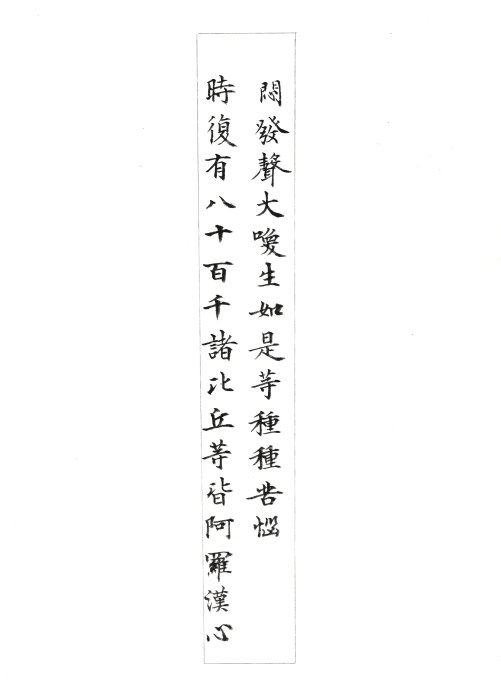 悶發聲大喚生如是等種種苦惱
時復有八十百千諸比丘等皆阿羅漢心